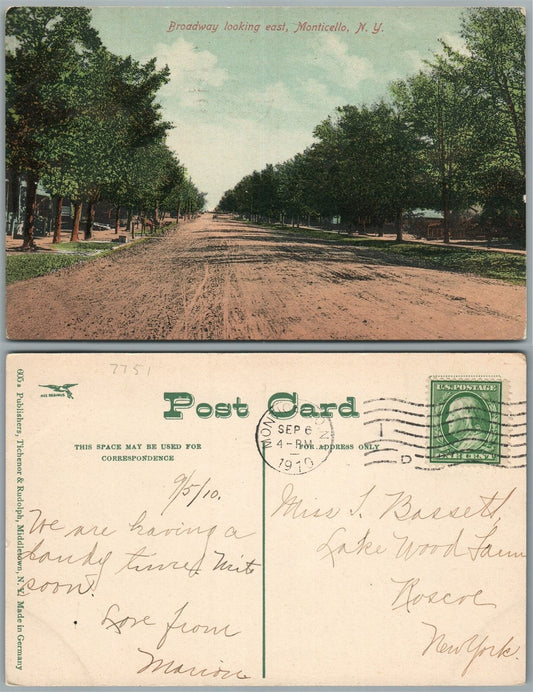 Broadway looking east, Monticello, N. Y.
7751
Post Card
THIS SPACE MAY BE USED FOR
CORRESPONDENCE
FOR ADDRESS ONLY
SEP 6
4-PM
1910
D
U.S. POSTAGE
ONE CENT
605 a Publishers, Tichenor & Rudolph, Middletown, N. Y. Made in Germany
9/5/10.
We are having a
dandy time. Write
soon!
Love from
Marion
Miss I. Bassett,
Lake Wood Farm
Roscoe
New York.